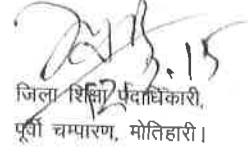 12.3.15
जिला शिक्षा पदाधिकारी,
पूर्वी चम्पारण, मोतिहारी।